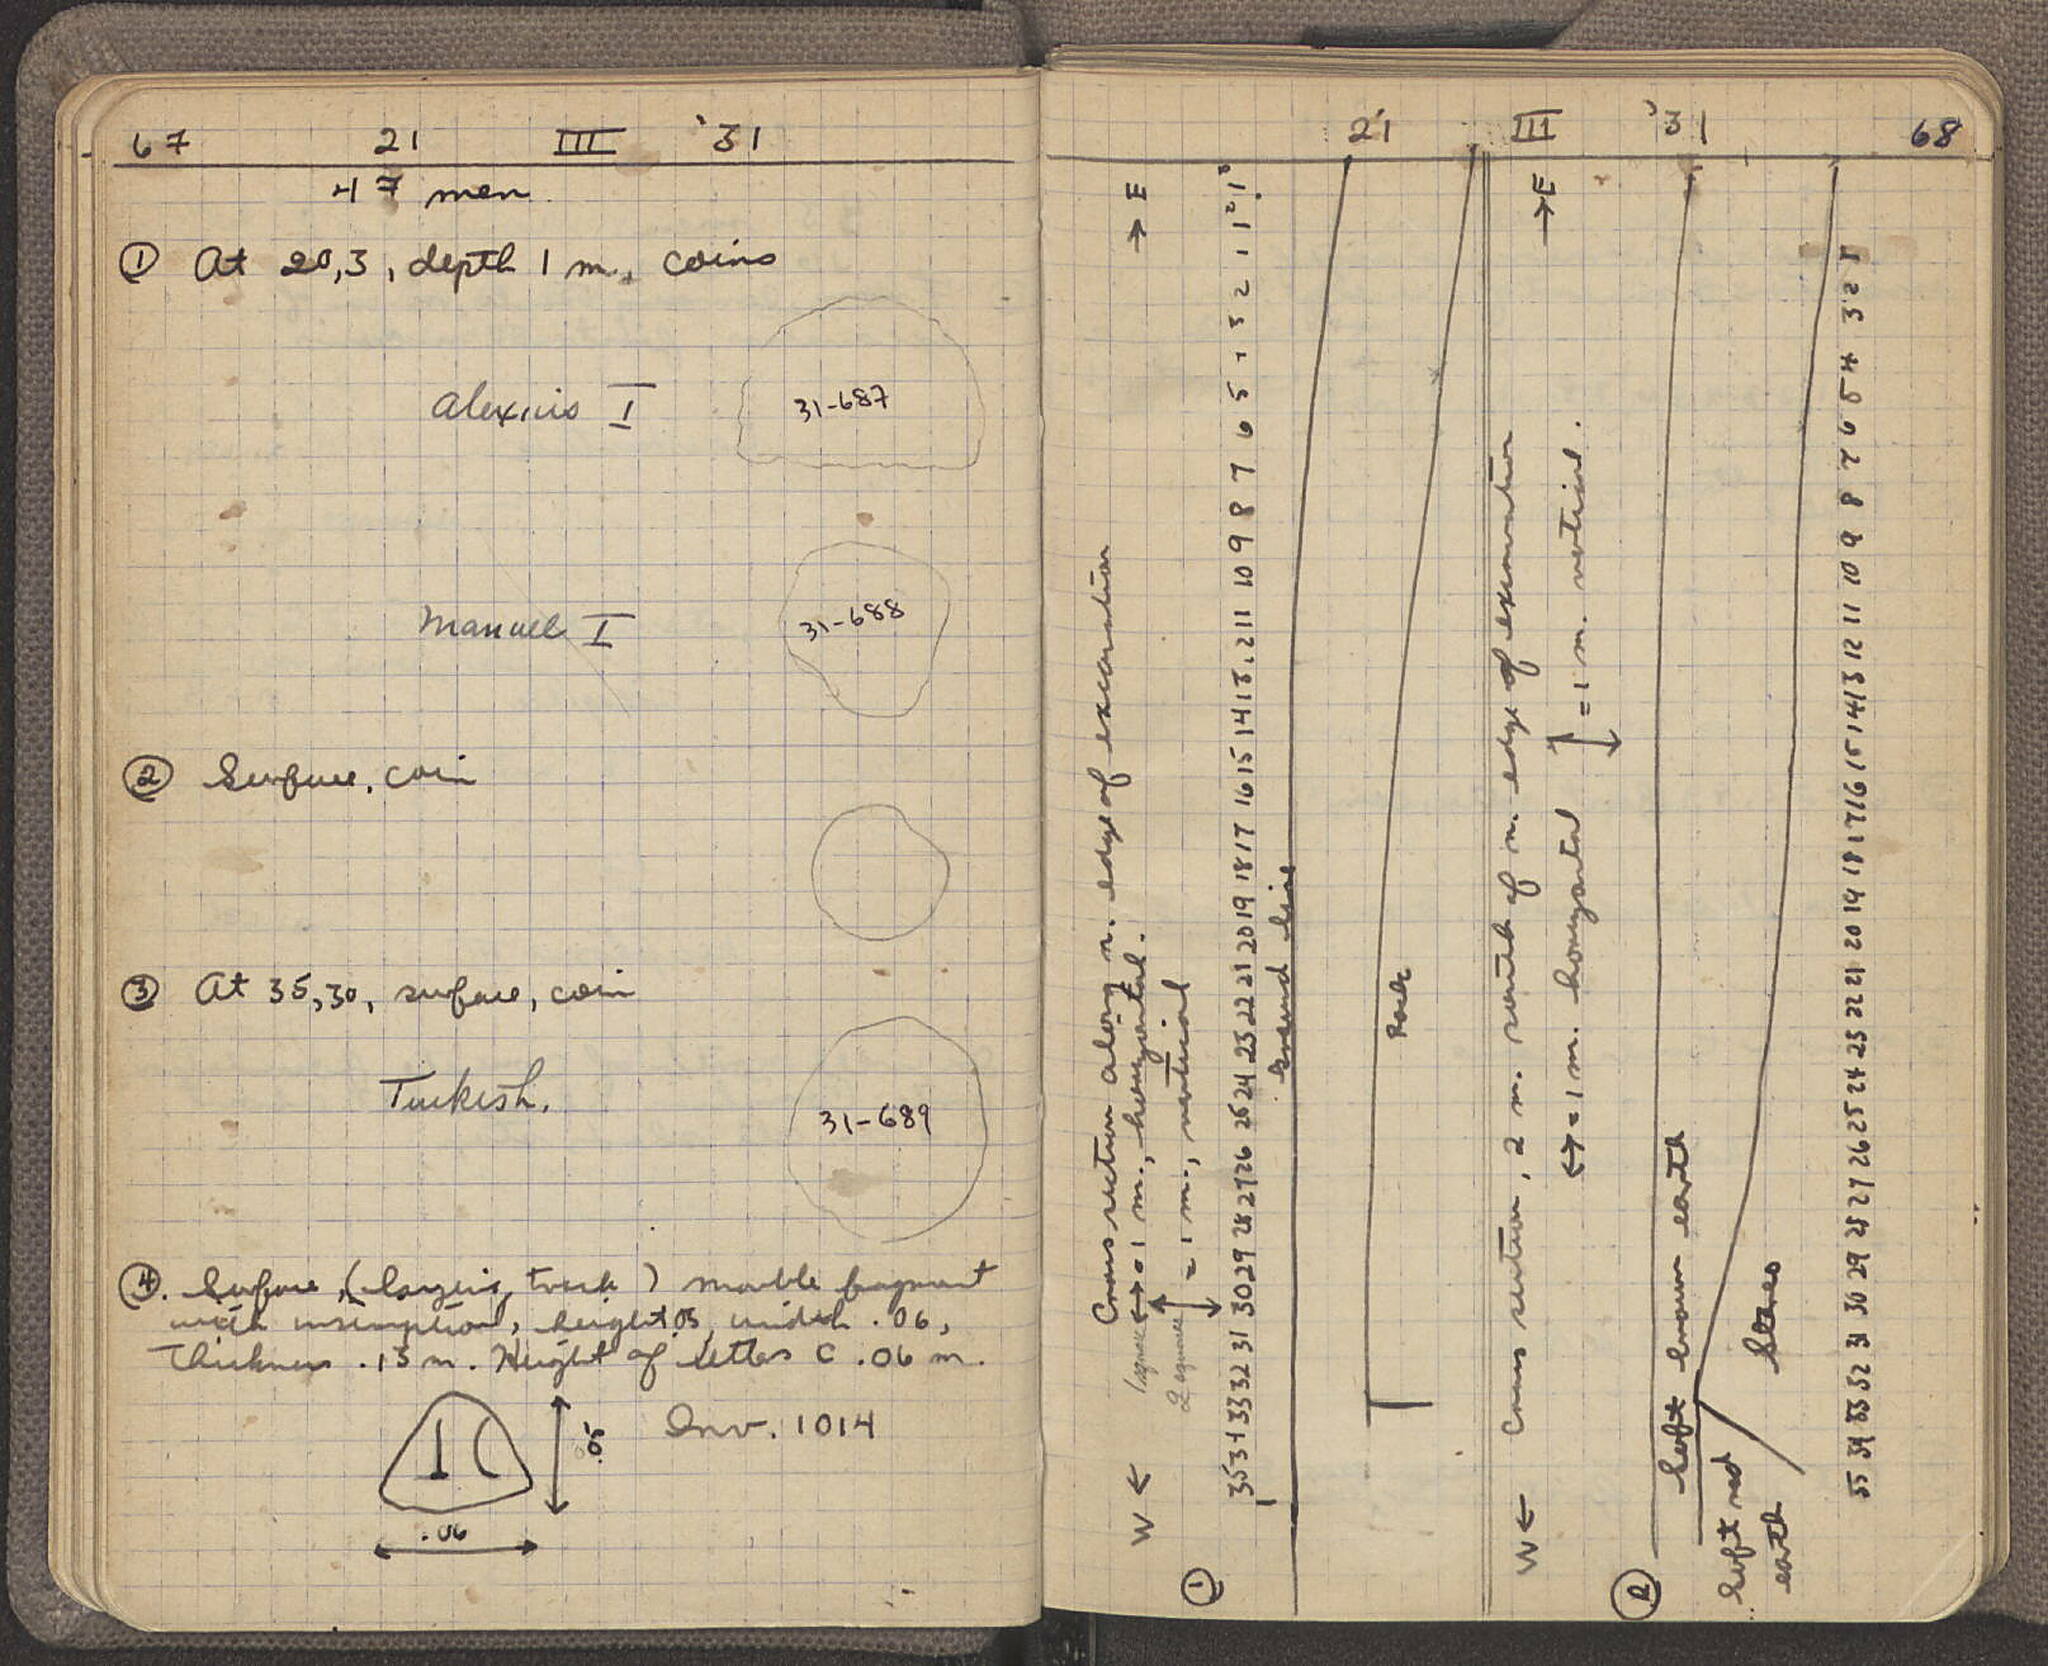 67 21 III '31
47 men.
① At 20,3, depth 1 m., coins
Alexius I 31-687
Manuel I 31-688
② Surface, coin
③ At 35,30, surface, coin
Turkish. 31-689
④. Surface, ( track) marble fragment
with inscription, height .05, width .06,
Thickness .13 m. Height of letters C .06 m.
I C
.05
Inv. 1014
.06
21 III '31 68
Cross section along n. edge of excavation
W ← → E
1 square ↔ = 1 m., horizontal.
2 squares ↕ = 1 m., vertical
①
35 34 33 32 31 30 29 28 27 26 25 24 23 22 21 20 19 18 17 16 15 14 13 . 2 11 10 9 8 7 6 5 - 3 2 1
Ground line
Rock
W ← Cross section, 2 m. south of n. edge of excavation → E
↔ = 1 m. horizontal ↕ = 1 m. vertical.
②
Soft brown earth
Soft red
earth
Stereo
35 34 33 32 31 30 29 28 27 26 25 24 23 22 21 20 19 18 17 16 15 14 13 12 11 10 9 8 7 6 5 4 3 2 1